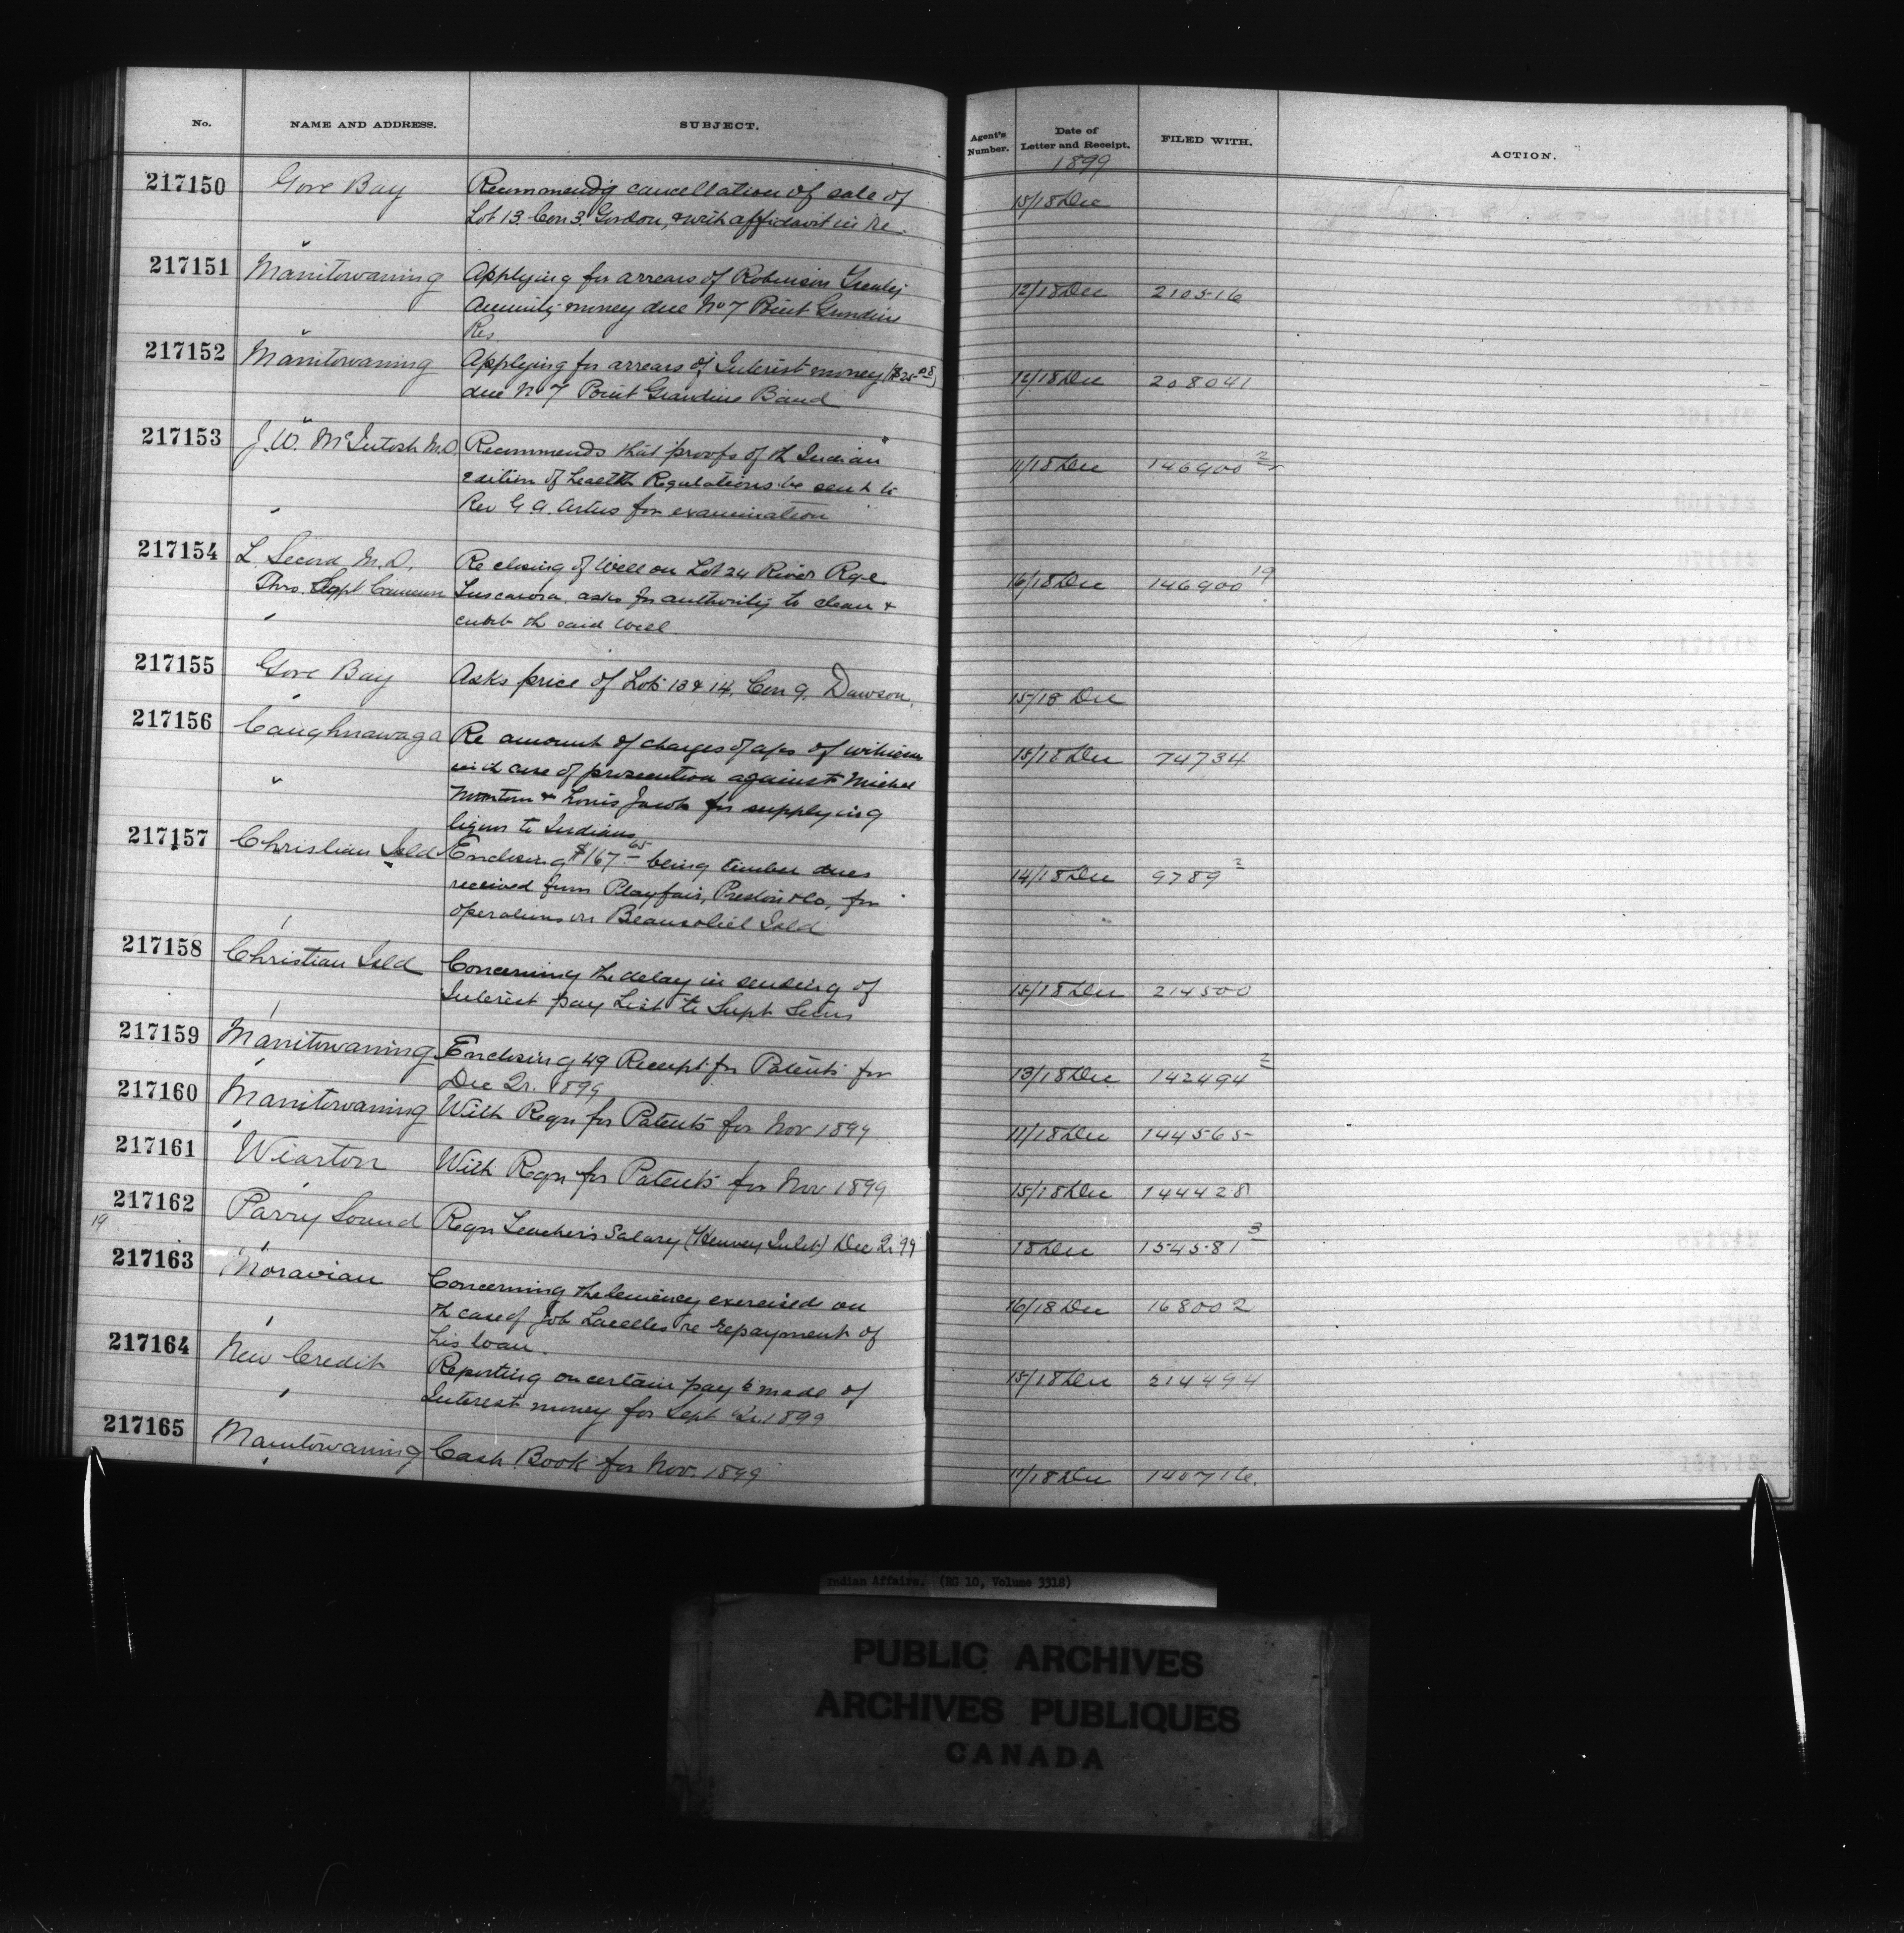 No. NAME AND ADDRESS. SUBJECT. Agent's Number. Date of Letter and Receipt. FILED WITH. ACTION.
1899
217150 Gore Bay Recommend'g cancellation of sale of 15/18 Dec
Lot 13 Con 3 Gordon, & with affidavit in re.
217151 Manitowaning Applying for arrears of Robinson Treaty 12/18 Dec 210516
Annuity money due No 7 Point Grondine
Res
217152 Manitowaning Applying for arrears of Interest money ($25.08) 12/18 Dec 208041
due No 7 Point Grondine Band
217153 J. W. McIntosh M.D. Recommends that proofs of th Indian 11/18 Dec 146900 2
edition of Health Regulations be sent to
Rev G. A. Artus for examination
217154 L. Secord M.D. Re closing of Well on Lot 24 River Rge 16/18 Dec 146900 19
Thro. Supt Cameron Tuscarora asks for authority to clean &
curb th said well.
217155 Gore Bay Asks price of Lots 13 & 14, Con 9, Dawson. 15/18 Dec
217156 Caughnawaga Re amount of charges of of witness 15/18 Dec 74734
in th case of prosecution against Michel
& Louis Jacob for supplying
liquor to Indians
217157 Christian Isld Enclosing $167.65 being timber dues 14/18 Dec 9789 2
received from Playfair, Preston & Co, for
operations on Beausoliel Isld
217158 Christian Isld Concerning the delay in sending of 15/18 Dec 214500
Interest pay List to Supt
217159 Manitowaning Enclosing 49 Receipt for Patents for 13/18 Dec 142494 2
Dec Qr. 1899
217160 Manitowaning With Reqn for Patents for Nov 1899 11/18 Dec 144565
217161 Wiarton With Reqn for Patents for Nov 1899 15/18 Dec 144428
217162 Parry Sound Reqn Teacher's Salary (Henvey Inlet) Dec Qr 99 18 Dec 154581 3
19
217163 Moravian Concerning the leniency exercised on 16/18 Dec 168002
th case of Job Lacelles re repayment of
his loan.
217164 New Credit Reporting on certain pay'ts made of 15/18 Dec 214494
Interest money for Sept Qr. 1899
217165 Manitowaning Cash Book for Nov. 1899 11/18 Dec 140716.
Indian Affairs. (RG 10, Volume 3318)
PUBLIC ARCHIVES
ARCHIVES PUBLIQUES
CANADA